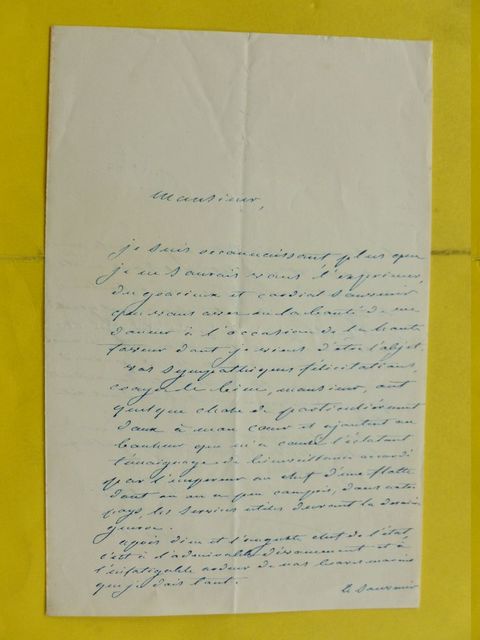 Monsieur,
je suis reconnaissant plus que
je ne saurais vous l'exprimer,
du gracieux et cordial souvenir
que vous avez eu la bonté de me
donner à l'occasion de la haute
faveur dont je viens d'être l'objet.
vos sympathiques félicitations,
croyez le bien, monsieur, ont
quelque chose de particulièrement
doux à mon cœur et ajoutent au
bonheur que m'a causé l'éclatant
témoignage de bienveillance accordé
par l'empereur au chef d'une flotte
dont on a un peu compris, dans notre
pays, les services utiles durant la dernière
guerre.
après dieu et l'auguste chef de l'état,
c'est à l'admirable dévouement et à
l'infatigable ardeur de nos braves marins
que je dois tout.
le souvenir